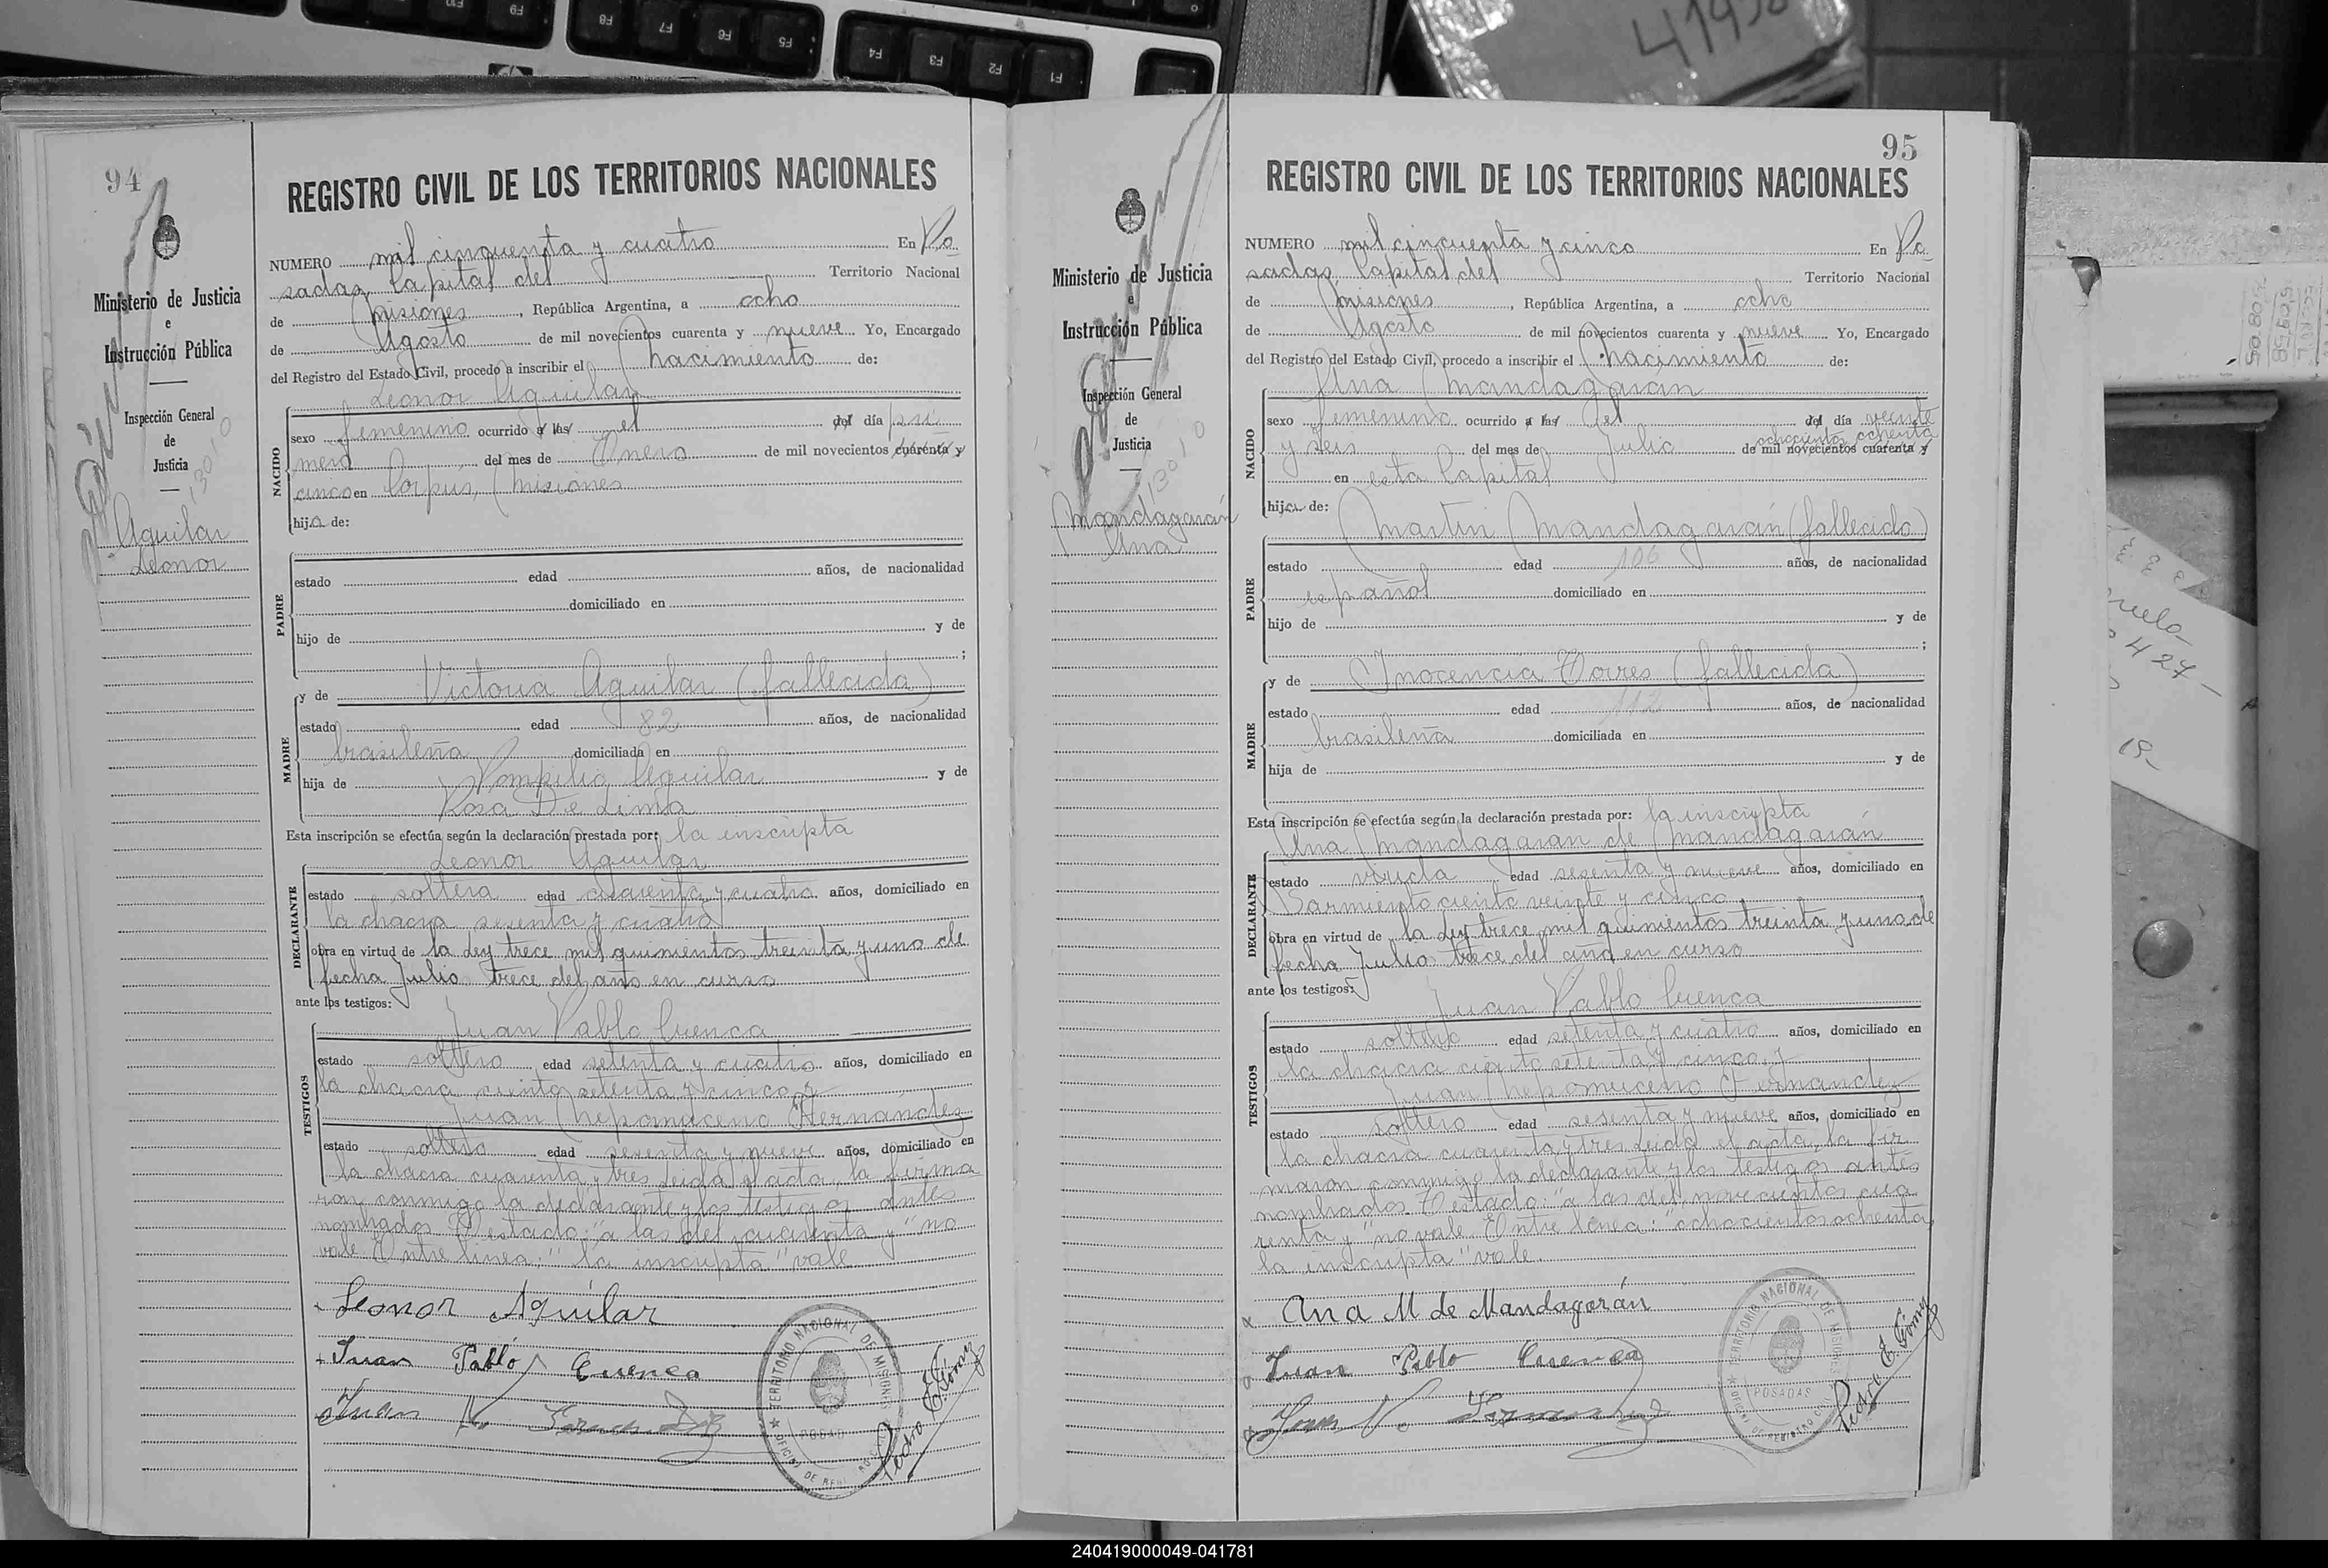 F9
F8
F7
F6
F5
F4
F3
F2
F1
94
REGISTRO CIVIL DE LOS TERRITORIOS NACIONALES
Ministerio de Justicia
e
Instrucción Pública
Inspección General
de
Justicia
13010
Aguilar
Leonor
NUMERO mil cinquenta y cuatro En Po
sadas, Capital del Territorio Nacional
de Misiones, República Argentina, a ocho
de Agosto de mil novecientos cuarenta y nueve Yo, Encargado
del Registro del Estado Civil, procedo a inscribir el nacimiento de:
NACIDO
Leonor Aguilar
sexo femenino ocurrido a las el del día pri
mero del mes de Enero de mil novecientos cuarenta y
cinco en Corpus, Misiones
hija de:
PADRE
estado edad años, de nacionalidad
domiciliado en
hijo de y de
;
y de Victoria Aguilar (fallecida)
MADRE
estado edad 82 años, de nacionalidad
brasileña domiciliada en
hija de Pompilio Aguilar y de
Rosa De Lima
Esta inscripción se efectúa según la declaración prestada por: la inscripta
DECLARANTE
Leonor Aguilar
estado soltera edad cuarenta y cuatro años, domiciliado en
la chacra sesenta y cuatro
obra en virtud de la Ley trece mil quinientos treinta y uno de
fecha Julio trece del año en curso
ante los testigos:
TESTIGOS
Juan Pablo Cuenca
estado soltero edad setenta y cuatro años, domiciliado en
la chacra ciento setenta y cinco y
Juan Nepomuceno Hernández
estado soltero edad sesenta y nueve años, domiciliado en
la chacra cuarenta y tres. Leida el acta, la firma
ron conmigo la declarante y los testigos antes
nombrados. Testado: "a las del, cuarenta y" no
vale. Entre linea: "la inscripta" vale.
Leonor Aguilar
Juan Pablo Cuenca
Juan N.
TERRITORIO NACIONAL DE MISIONES
POSADAS
Pedro E. Gómez
95
REGISTRO CIVIL DE LOS TERRITORIOS NACIONALES
Ministerio de Justicia
e
Instrucción Pública
Inspección General
de
Justicia
13010
Mandagarán
Ana
NUMERO mil cincuenta y cinco En Po
sadas, Capital del Territorio Nacional
de Misiones, República Argentina, a ocho
de Agosto de mil novecientos cuarenta y nueve Yo, Encargado
del Registro del Estado Civil, procedo a inscribir el nacimiento de:
NACIDO
Ana Mandagarán
sexo femenino ocurrido a las el del día veinte
ochocientos ochenta
y seis del mes de Julio de mil novecientos cuarenta y
en esta Capital
hija de:
Martin Mandagarán (fallecido)
PADRE
estado edad 106 años, de nacionalidad
español domiciliado en
hijo de y de
;
y de Inocencia Torres (fallecida)
MADRE
estado edad 112 años, de nacionalidad
brasileña domiciliada en
hija de y de
Esta inscripción se efectúa según la declaración prestada por: la inscripta
DECLARANTE
Ana Mandagaran de Mandagarán
estado viuda edad sesenta y nueve años, domiciliado en
Sarmiento ciento veinte y cinco
obra en virtud de la Ley trece mil quinientos treinta y uno de
fecha Julio trece del año en curso
ante los testigos:
TESTIGOS
Juan Pablo Cuenca
estado soltero edad setenta y cuatro años, domiciliado en
la chacra ciento setenta y cinco y
Juan Nepomuceno Hernandez
estado soltero edad sesenta y nueve años, domiciliado en
la chacra cuarenta y tres. Leida el acta, la fir
maron conmigo la declarante y los testigos antes
nombrados. Testado: "a las del, novecientos cua
renta y" no vale. Entre linea: "ochocientos ochenta,
la inscripta" vale.
Ana M de Mandagarán
Juan Pablo Cuenca
Juan N.
TERRITORIO NACIONAL DE MISIONES
POSADAS
Pedro E. Gómez
240419000049-041781